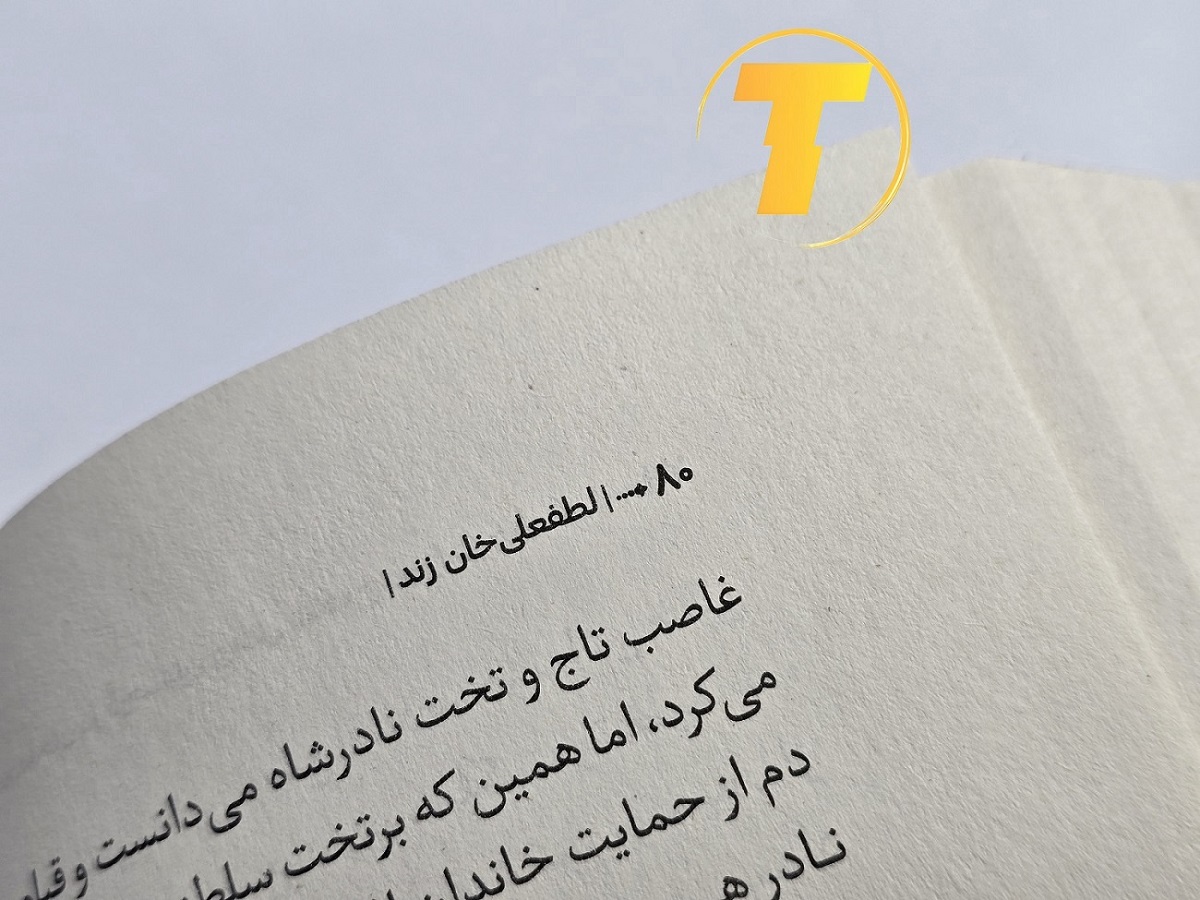 T
۸۰ | لطفعلی‌خان زند |
غاصب تاج و تخت نادرشاه می‌دانست و
می‌کرد، اما همین که برتخت
دم از حمایت
نادر